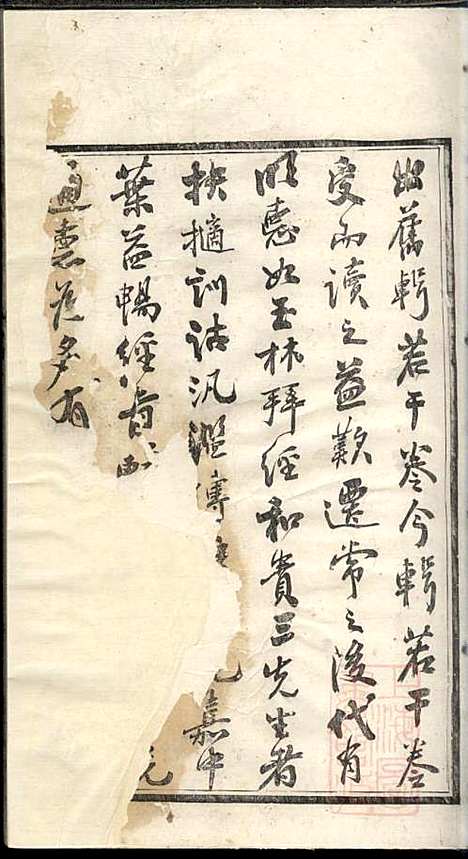 出舊輯若干卷今輯若干卷
受而讀之益歎還常之後代有
明德如玉林拜經和貴三先生者
抉擿訓詁汎濫傳
嘉中
葉益暢經肯
通
多有